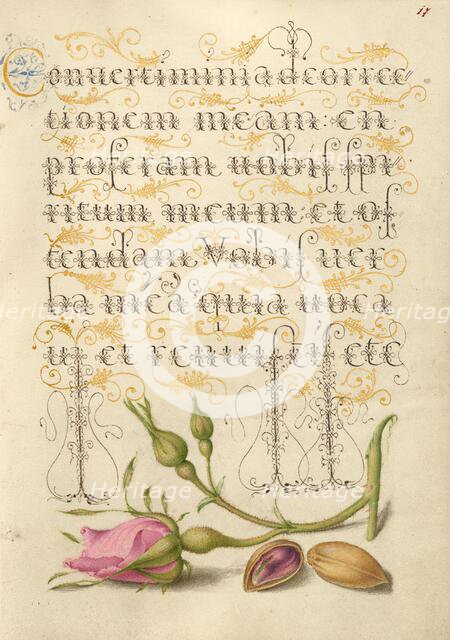 17
Conuertimini ad correc
tionem meam. en
proferam uobis spi
ritum meum. et os
tendam Vobis uer
ba mea quia uoca
ui et renuistis etc
Heritage
Heritage
Heritage
Heritage